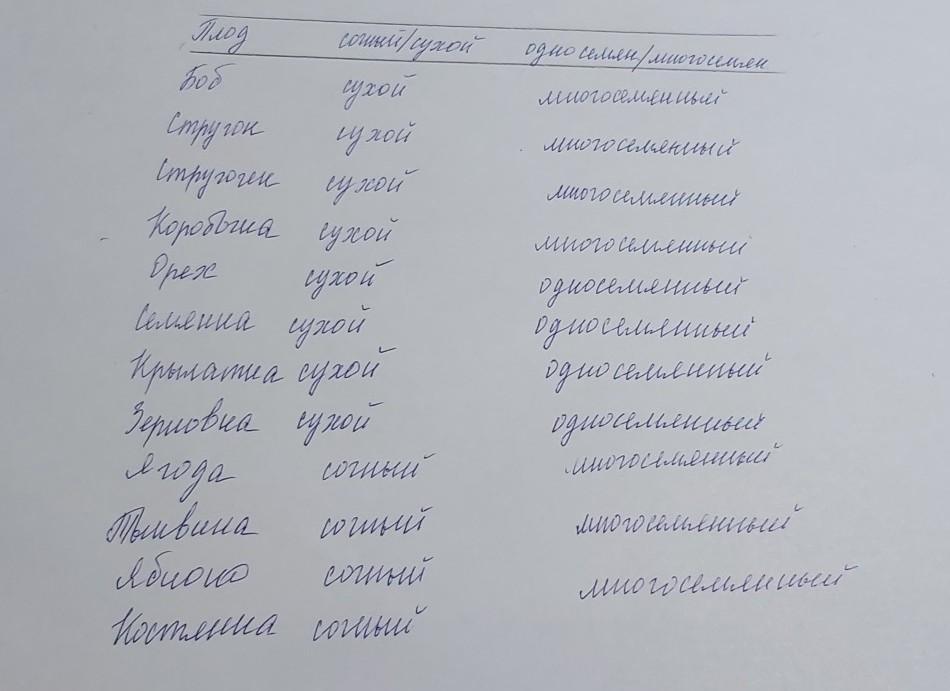 Плод сочный/сухой односемян/многосемян
Боб сухой многосемянный
Стручок сухой многосемянный
Стручочек сухой многосемянный
Коробочка сухой многосемянный
Орех сухой односемянный
Семянка сухой односемянный
Крылатка сухой односемянный
Зерновка сухой односемянный
Ягода сочный многосемянный
Тыквина сочный многосемянный
Яблоко сочный многосемянный
Костянка сочный